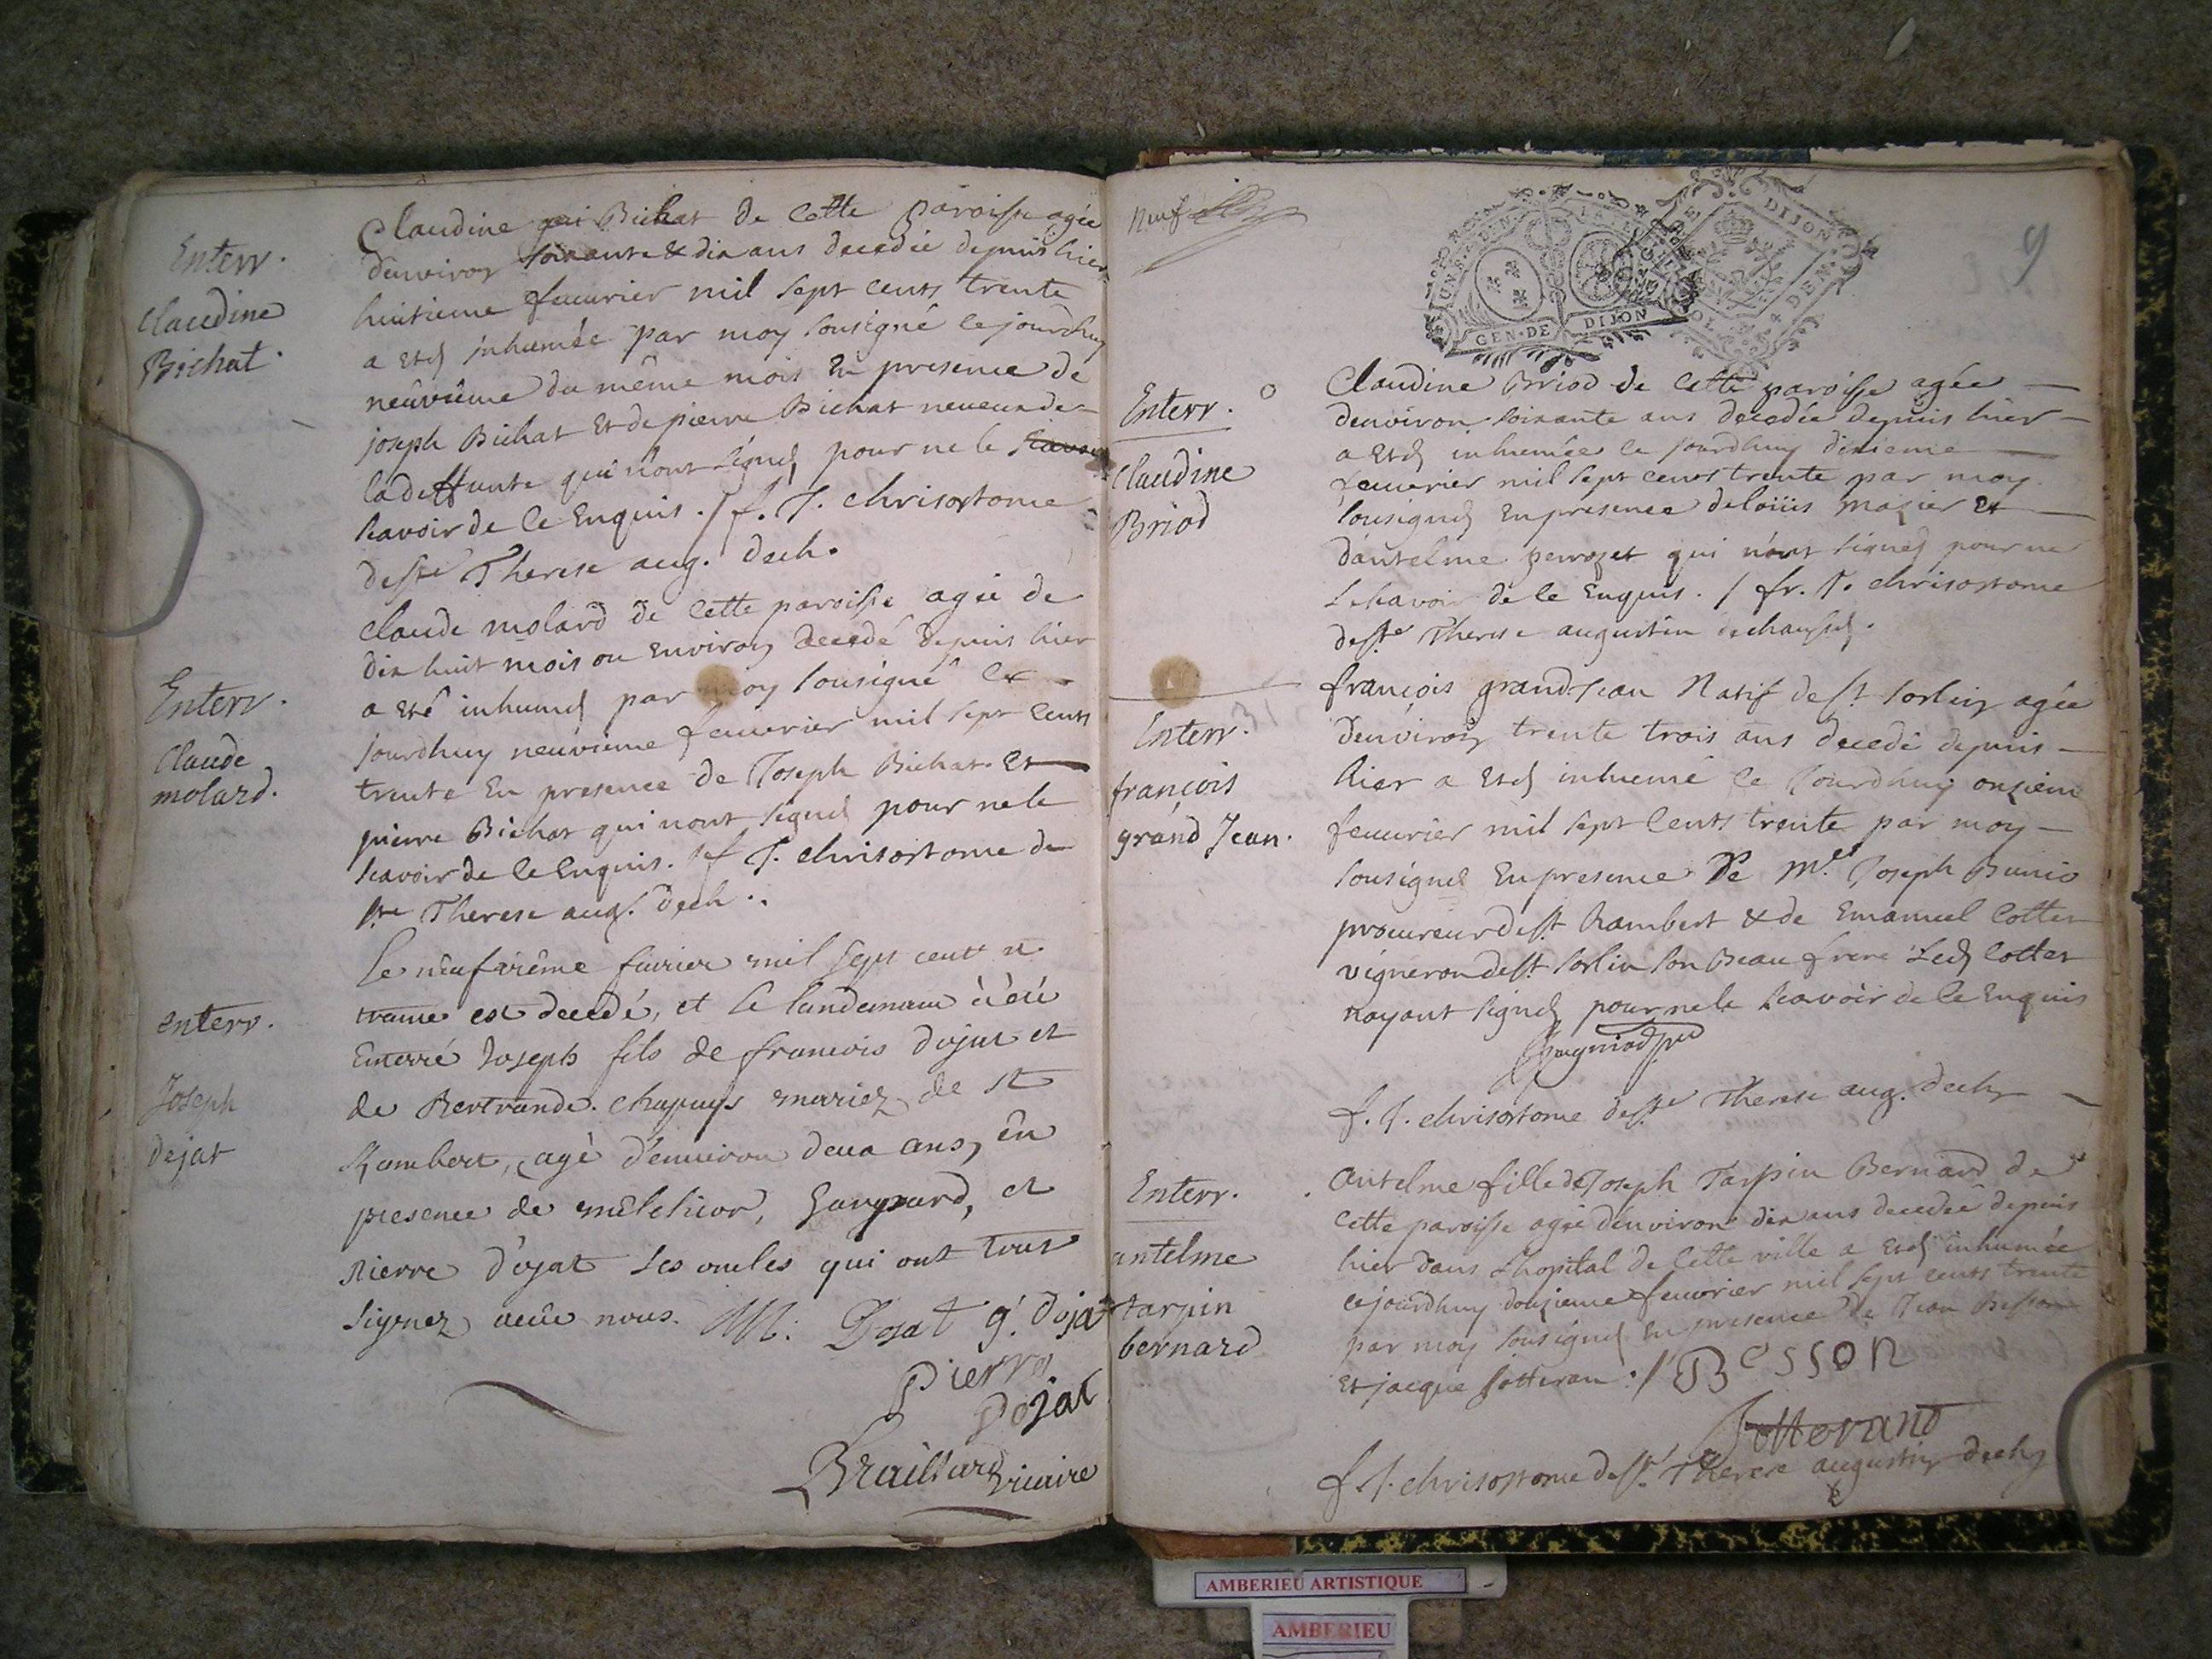 Enterr.
Claudine
Bichat.
Claudine Bichat de Cette paroisse agée
denviron soixante & dix ans decedée depuis hier
huitieme feuvrier mil sept cents trente
a eté inhumée par moy sousigné ce jourdhuy
neûvieme du même mois En presence de
joseph Bichat Et de pierre Bichat neveux de
la deffunte qui n'ont signé pour ne le
scavoir de ce Enquis ./ f. J. chrisostome
de ste Therese aug. dech.
Enterr.
Claude
molard.
claude molard de Cette paroisse agée de
dix huit mois ou Environ decedé depuis hier
a eté inhumé par moy sousigné Ce
jourdhuy neuvieme feuvrier mil sept Cents
trente En presence de Joseph Bichat Et
pierre Bichat qui n'ont signé pour ne le
scavoir de ce Enquis. / f J. chrisostome de
ste Therese aug. dech..
enterr.
Joseph
dejat
Le neufvième fevrier mil sept cent
trante est decedé, et le landemain à été
Enterré Joseph fils de francois dojat et
de Bertrande chapuys mariez de st
Rambert, agé d'environ deux ans, en
presence de melchior, Gaspard, et
Pierre d'ojat ses oncles qui ont tous
signez avec nous. M. Dojat g. dojat
Pierre
Dojat
Braillard vicaire
neuf
9
GEN. DE DIJON
DIJON
Enterr.
Claudine
Briod
Claudine Briod de Cette paroisse agée
denviron soixante ans decedée depuis hier
a eté inhumée ce jourdhuy dixieme
feuvrier mil sept cents trente par moy
sousigné En presence de loüis mazier Et
d'antelme perrozet qui n'ont signé pour ne
Scavoir de ce Enquis. / fr. J. chrisostome
de ste Therese augustin dechaussé.
Enterr.
françois
grand Jean.
françois grand Jean Natif de st sorlin agée
denviron trente trois ans decedé depuis
hier a eté inhumé ce jourdhuy onzieme
feuvrier mil sept Cents trente par moy
sousigné En presence De Me. Joseph
procureur de st Rambert & de Emanuel Cottet
vigneron de st sorlin son Beau frere Led Cottet
nayant signé pour ne le scavoir de ce Enquis
f. J. chrisostome de ste Therese aug. dech
Enterr.
antelme
tarpin
bernard
Antelme fille de Joseph Tarpin Bernard de
Cette paroisse agée denviron dix ans decedée depuis
hier dans Lhopital de Cette ville a eté inhumée
ce jourdhuy douzieme feuvrier mil sept cents trente
par moy sousigné En presence de Jean Besson
Et jacque Jotteran :/ Besson
Jotterand
f. J. chrisostome de ste Therese augustin dech
AMBERIEU ARTISTIQUE
AMBERIEU